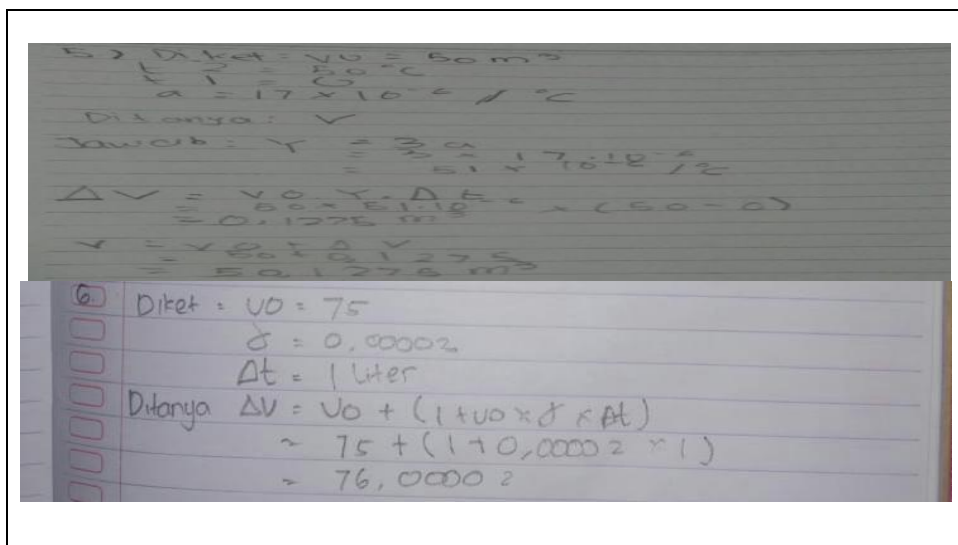 5) Diket: V0 = 50 m³
t 2 = 50 °C
t 1 = 0
a = 17 x 10⁻⁶ / °C
Ditanya: V
Jawab: γ = 3 a
ΔV = V0 . γ . Δt
x (50 - 0)
= 0,1275 m
V = V0 + Δ V
= 50 + 0,1275
= 50,1275 m³
6. Diket : VO = 75
γ = 0,00002
Δt = 1 Liter
Ditanya ΔV = VO + (1 + VO x γ x Δt)
= 75 + (1 + 0,00002 x 1)
= 76,00002